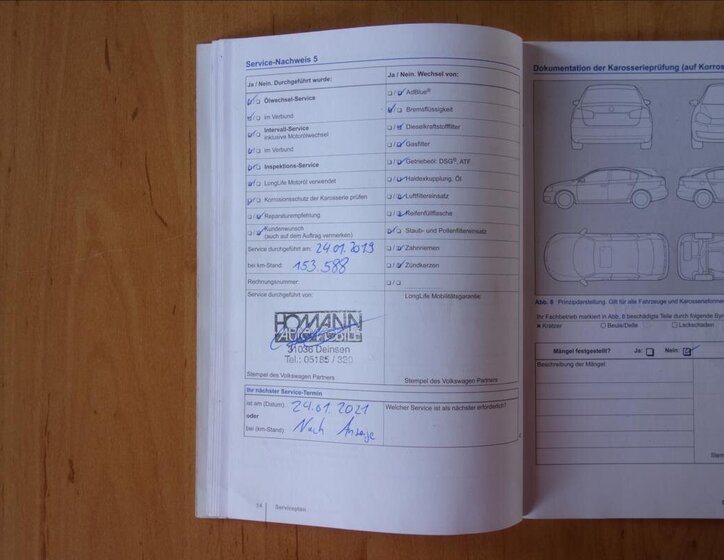 Service-Nachweis 5
Ja / Nein. Durchgeführt wurde:
Ölwechsel-Service
im Verbund
Intervall-Service
inklusive Motorölwechsel
im Verbund
Inspektions-Service
LongLife Motoröl verwendet
Korrosionsschutz der Karosserie prüfen
Reparaturempfehlung
Kundenwunsch
(auch auf dem Auftrag vermerken)
Service durchgeführt am: 24.01.2019
bei km-Stand: 153.588
Rechnungsnummer:
Service durchgeführt von:
HOMANN
AUTOMOBILE
31036 Deinsen
Tel.: 05185 / 320
Stempel des Volkswagen Partners
Ja / Nein. Wechsel von:
AdBlue®
Bremsflüssigkeit
Dieselkraftstofffilter
Gasfilter
Getriebeöl: DSG®, ATF
Haldexkupplung, Öl
Luftfiltereinsatz
Reifenfüllflasche
Staub- und Pollenfiltereinsatz
Zahnriemen
Zündkerzen
LongLife Mobilitätsgarantie:
Stempel des Volkswagen Partners
Ihr nächster Service-Termin
ist am (Datum): 24.01.2021
oder
bei (km-Stand): Nach Anzeige
Welcher Service ist als nächster erforderlich?
54 Serviceplan
Dokumentation der Karosserieprüfung (auf Korros
Abb. 6 Prinzipdarstellung. Gilt für alle Fahrzeuge und Karosserieformen
Ihr Fachbetrieb markiert in Abb. 6 beschädigte Teile durch folgende Sy
Kratzer Beule/Delle Lackschaden
Mängel festgestellt? Ja: Nein:
Beschreibung der Mängel:
Stem